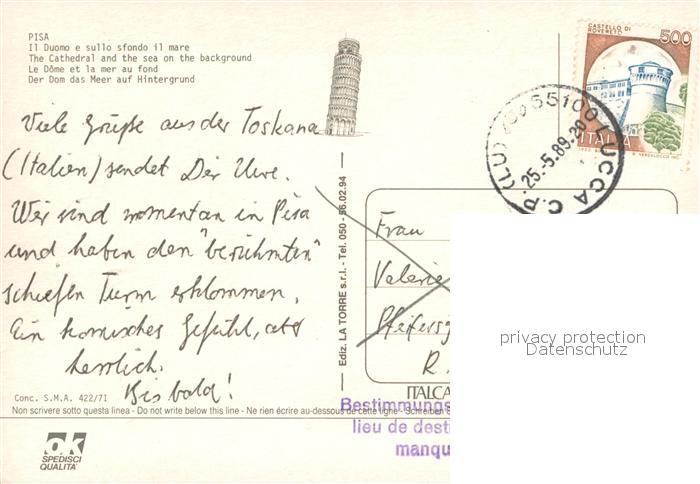 PISA
Il Duomo e sullo sfondo il mare
The Cathedral and the sea on the background
Le Dôme et la mer au fond
Der Dom das Meer auf Hintergrund
CASTELLO DI
ROVERETO
500
ITALIA
55100 LUCCA C.P. (LU)
25.-5.89.20
Viele Grüße aus der Toskana
(Italien) sendet Dir Uwe.
Wir sind momentan in Pisa
und haben den "berühmten"
schiefen Turm erklommen.
Ein komisches Gefühl, aber
herrlich.
Bis bald!
Ediz. LA TORRE s.r.l. - Tel. 050 - 56.02.94
Frau
Valerie
R.
privacy protection
Datenschutz
ITALCA
Conc. S.M.A. 422/71
Non scrivere sotto questa linea - Do not write below this line - Ne rien écrire au-dessous de cette ligne - Schreiben
Bestimmungs
lieu de desti
manqu
ok
SPEDISCI
QUALITA'